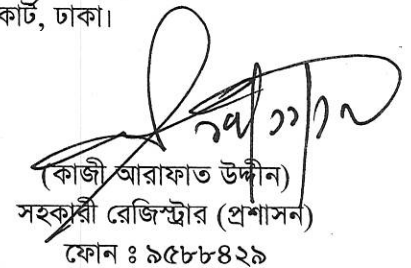 কোর্ট, ঢাকা।
(কাজী আরাফাত উদ্দীন)
সহকারী রেজিস্ট্রার (প্রশাসন)
ফোন ঃ ৯৫৮৮৪২৯